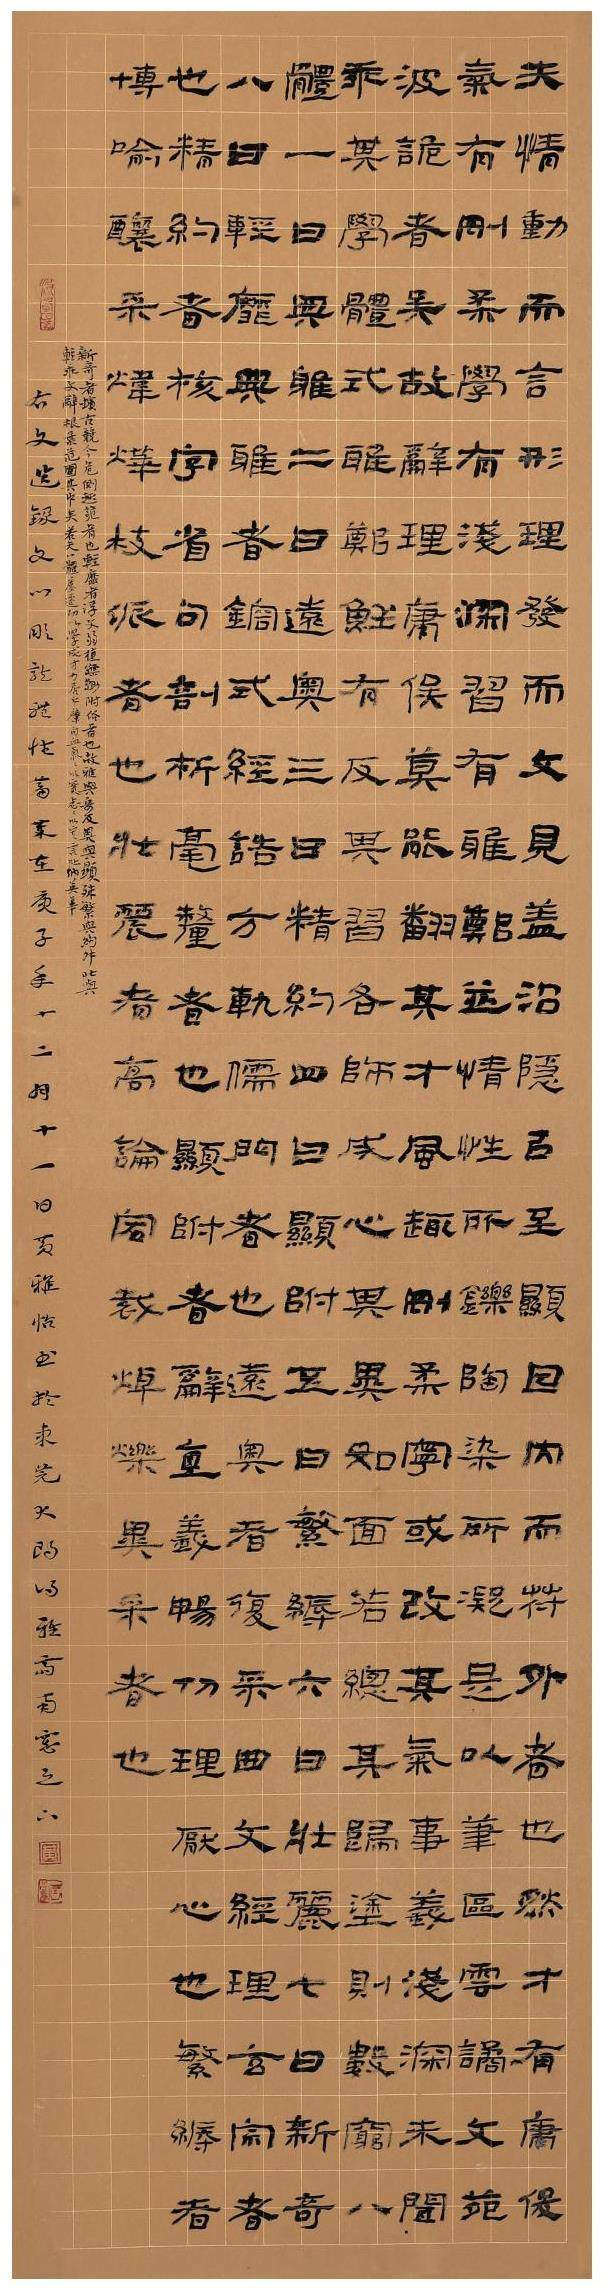 夫情動而言形理發而文見盖沿隱㠯至顯因內而符外者也然才有庸俊
氣有剛柔學有淺深習有雅鄭並情性所鑠陶染所凝是以筆區雲譎文苑
波詭者矣故辭理庸俊莫能翻其才風趣剛柔寧或改其氣事義淺深未聞
乖其學體式雅鄭鮮有反其習各師成心其異如面若總其歸塗則數窮八
體一曰典雅二曰遠奧三曰精約四曰顯附五曰繁縟六曰壯麗七曰新奇
八曰輕靡典雅者鎔式經誥方軌儒門者也遠奧者復采曲文經理玄宗者
也精約者核字省句剖析毫釐者也顯附者辭直義暢切理厭心也繁縟者
博喻釀采煒燁枝派者也壯麗者高論宏裁焯爍異采者也
新奇者擯古競今危側趣詭者也輕靡者浮文弱植縹緲附俗者也故雅與奇反奧與顯殊繁與約舛壯與
輕乖文辭根葉苑囿其中矣若夫八體屢遷功以學成才力居中肇自血氣氣以實志志以定言吐納英華
右文選錄文心雕龍體性篇在庚子年十二月十一日黃雅怡書於東莞大朗得雅齋南窗之下